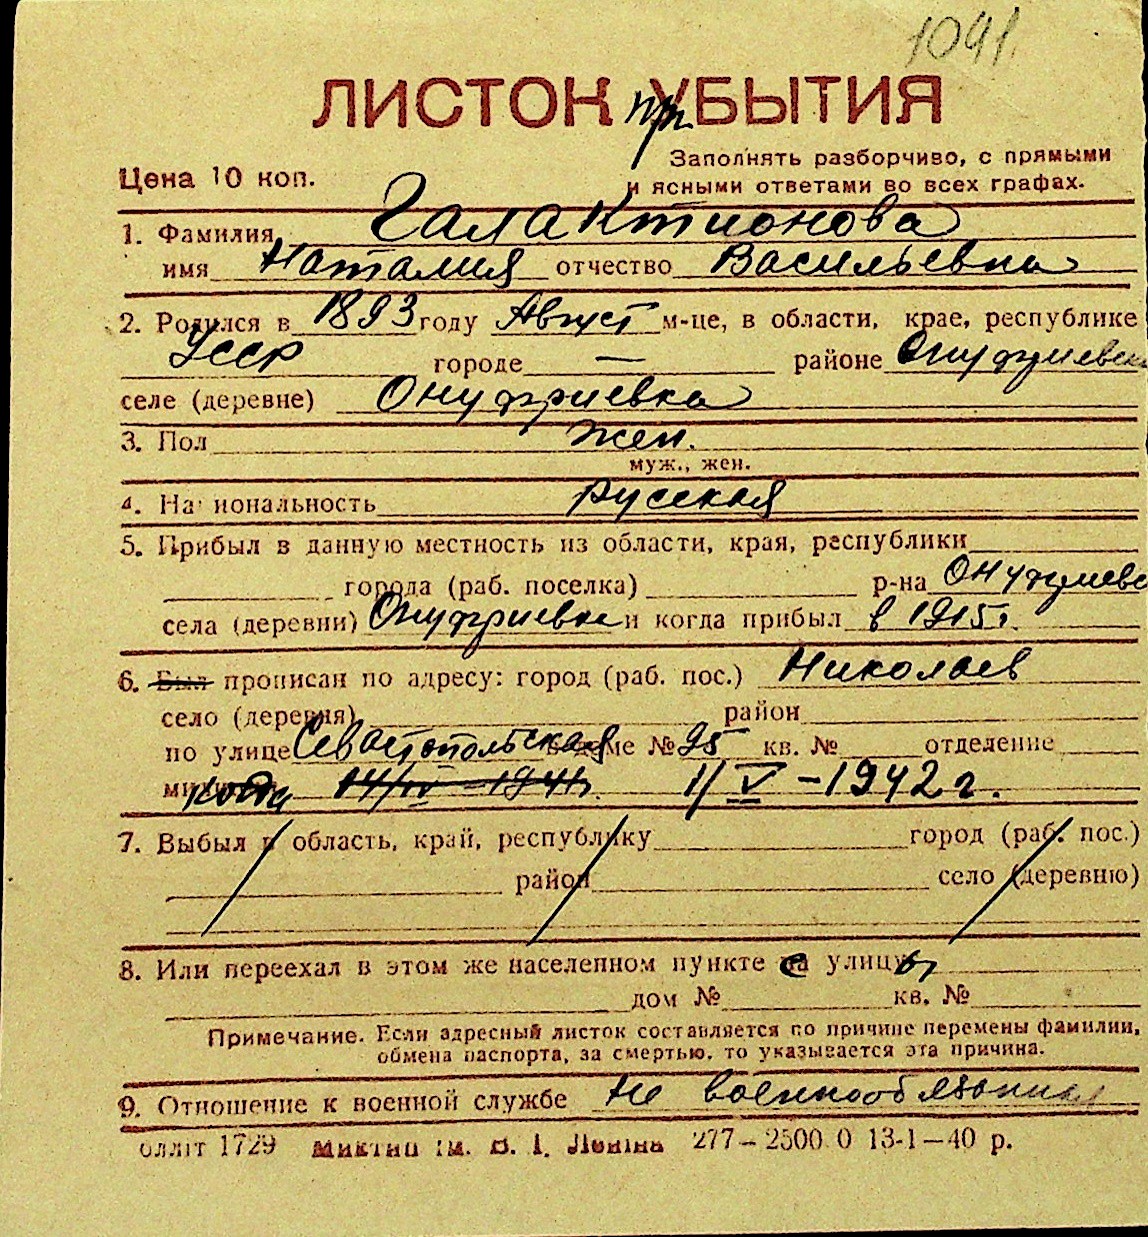 1091.
ЛИСТОК при УБЫТИЯ
Заполнять разборчиво, с прямыми
Цена 10 коп.
и ясными ответами во всех графах.
1. Фамилия Галактионова
имя Наталия отчество Васильевна
2. Родился в 1893 году Август м-це, в области, крае, республике
Усср городе — районе Онуфриевск
селе (деревне) Онуфриевка
3. Пол жен.
муж., жен.
4. Национальность русская
5. Прибыл в данную местность из области, края, республики
города (раб. поселка) р-на Онуфриевс
села (деревни) Онуфриевка и когда прибыл в 1915г.
6. Был прописан по адресу: город (раб. пос.) Николаев
село (деревня) район
по улице Севастопольская в доме № 95 кв. № отделение
когда 14/IV-1941. 1/V-1942г.
7. Выбыл в область, край, республику город (раб. пос.)
район село (деревню)
8. Или переехал в этом же населенном пункте с улицы
дом № кв. №
Примечание. Если адресный листок составляется по причине перемены фамилии,
обмена паспорта, за смертью, то указывается эта причина.
9. Отношение к военной службе не военнообязанная
1729 277—2500 0 13-1—40 р.